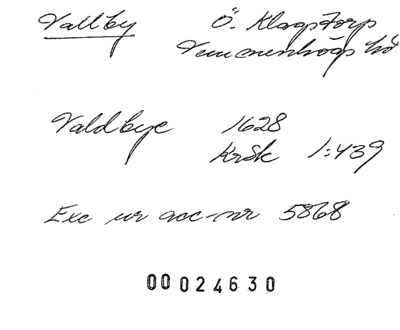 Vallby Ö. Klagstorp
Vemmenhögs hd
Valdbye 1628
KrSk 1:439
Exc ur acc-nr 5868
00024630